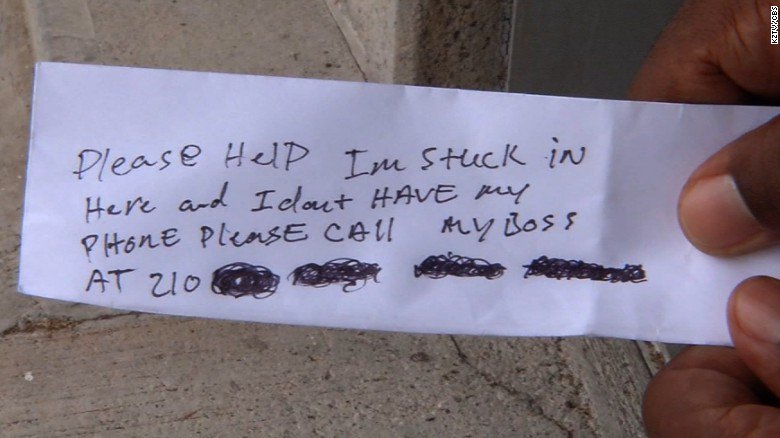 Please Help Im stuck in
Here and I dont HAVE my
PHONE Please CAll MY BOSS
AT 210
KZTV/CBS